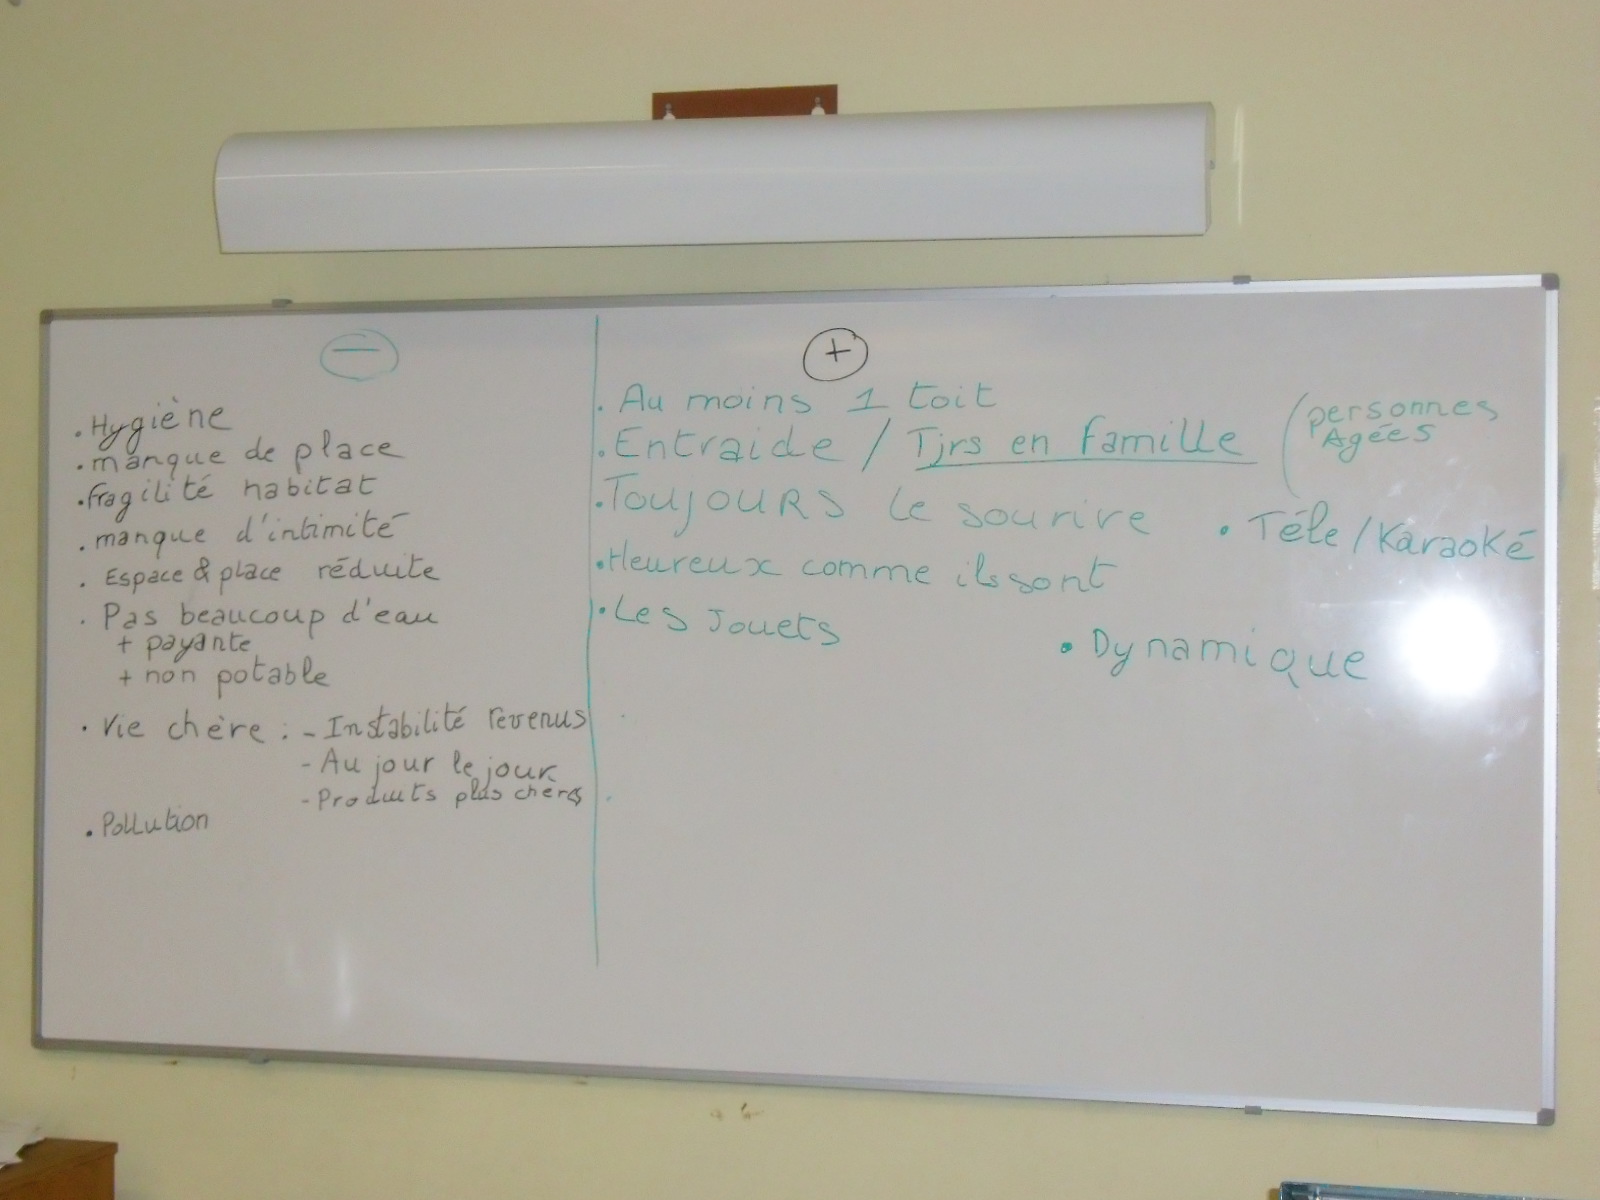 −
• Hygiène
• manque de place
• fragilité habitat
• manque d'intimité
• Espace & place réduite
• Pas beaucoup d'eau
+ payante
+ non potable
• Vie chère : - Instabilité revenus
- Au jour le jour
- Produits plus chers
• Pollution
+
• Au moins 1 toit
• Entraide / Tjrs en famille (personnes
Agées
• Toujours le sourire
• Téle / Karaoké
• Heureux comme ils sont
• Les Jouets
• Dynamique